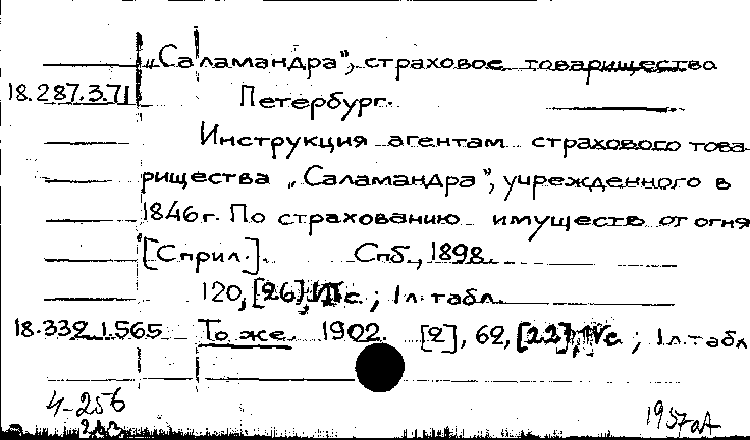 „Саламандра”, страховое товарищество
18.287.3.71 Петербург.
Инструкция агентам страхового това-
рищества „Саламандра”, учрежденного в
1846 г. По страхованию имуществ от огня
[С прил.]. Спб., 1898.
120, [26], с.; 1 л. табл.
18.332.1.565 То же. 1902. [2], 62, [22], IV с.; 1 л. табл
4-256
1957